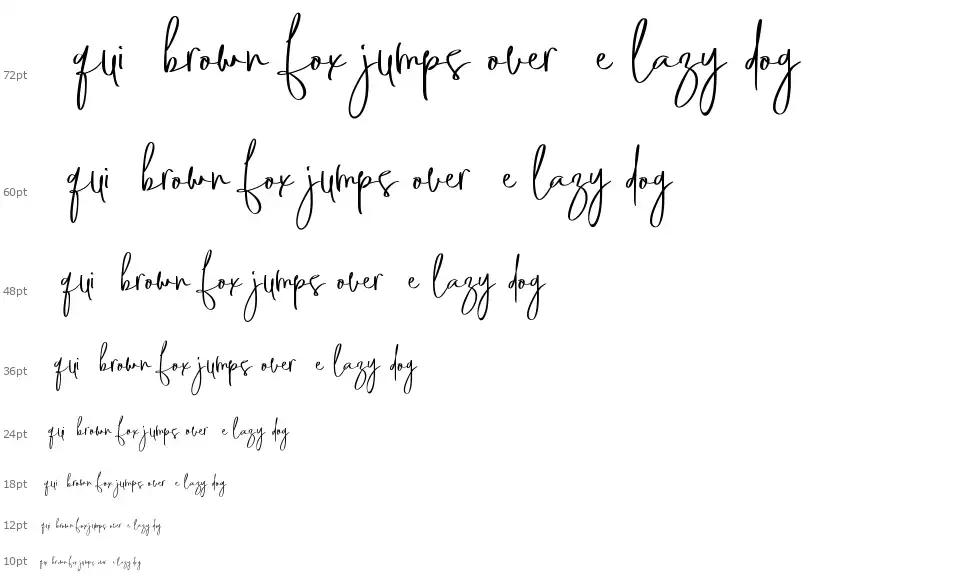 72pt qui brown fox jumps over e lazy dog
60pt qui brown fox jumps over e lazy dog
48pt qui brown fox jumps over e lazy dog
36pt qui brown fox jumps over e lazy dog
24pt qui brown fox jumps over e lazy dog
18pt qui brown fox jumps over e lazy dog
12pt qui brown fox jumps over e lazy dog
10pt qui brown fox jumps over e lazy dog